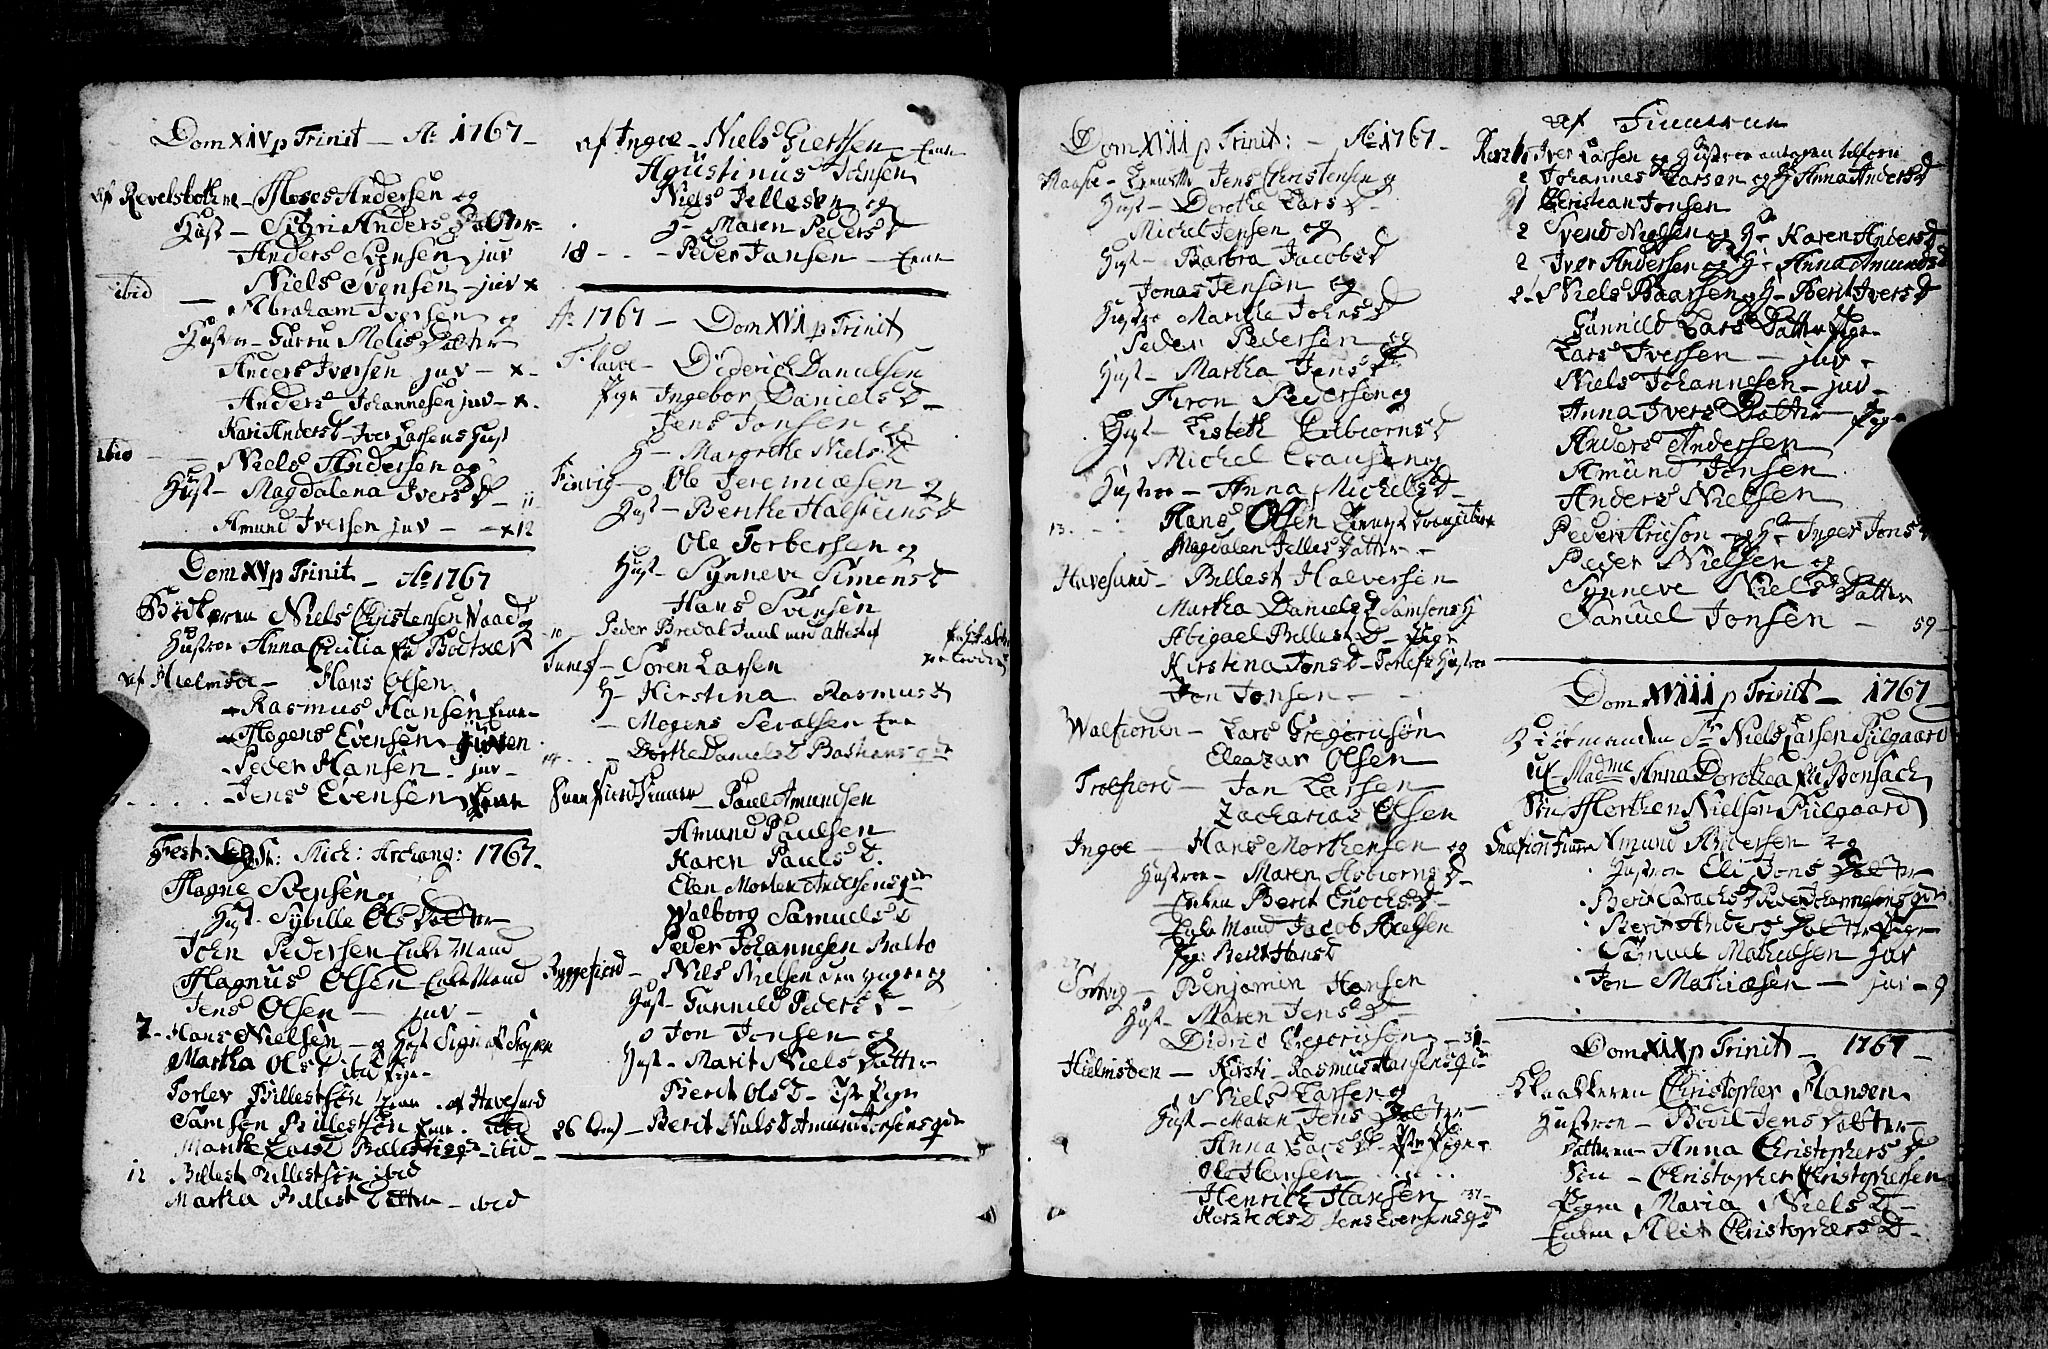 Dom XIV p Trinit — Ao 1767 —
af Revelsbotne — Moses Andersen og
Hust — Sigri Anders Datter —
Anders Svensen juv
ibid — Niels Svensen — juv x
Abraham Iversen og
Hustroe — Gurru Melis Datter
Anders Iversen juv — x —
Anders Johannesen juv — x.
Kari Andersd Iver Larsens Hust
ibid — Niels Andersen og
Hust — Magdalena Ivers D — 11
Amund Iversen juv — — x 12
Dom XV p Trinit — Ao 1767
Bödkeren Niels Christensen Waad og
Hustroe Anna Cecilia
af Hielmsöe — Hans Olsen
Rasmus Hansen Enne
Mogens Evensen
Peder Hansen — juv —
Jens Evensen
Fest: St: Mich: Archang: 1767 —
Magne Svensen og
Hust. Sybille Ols Datter
John Pedersen Enke Mand
Magnus Olsen Enke Mand
Jens Olsen — juv —
7 — Hans Nielsen — og Hust Signe
Martha Ols D ibid Pige —
Torlev Billestsön — af Havesund
Samson Billestsön — ibid
ibid
12 Billest Billestsön ibid
Martha Billest Datter — ibid
af Ingöe — Niels Giertsen — Enne
Agustinus Johnsen
Niels Jellesen og
H — Maren Peders D
18 — — Peder Jansen — Enne
Ao 1767 — Dom XVI p Trinit
Diderich Danielsen
Pige Ingebor Daniels D —
Jens Jonsen og
H — Margrethe Niels D
Finvig — Ole Jeremiæsen og
Hust — Berthe Halsteins D
Ole Torbersen og
Hust — Synneve Simens D
Hans Svensen
10 — Peder Bredal Juul med attest af
Tunes — Sören Larsen
H — Kirstina Rasmus D
— Mogens Sevalsen Enn
14 — Dorthe Daniels D Bastians qde
— Paul Amundsen
Amund Paulsen
Karen Pauls D.
Elen Morten Andersens qde
Walborg Samuels D
Peder Johannesen Balto
Ryggefiord — Niels Nielsen den yngre og
Hust — Gunnild Peders D —
Jon Jonsen og
Hust — Marit Niels Datter
Berit Ols D — Pige
26 — Berit Niels D Amund Jonsens qde
Dom XVII p Trinit: — Ao 1767 —
Maasöe — Jens Christensen og
Hust — Dorthe Lars D —
Michel Jensen og
Hust — Barbra Jacobs D
Jonas Jensen og
Hustroe Marille Johns D
Peder Pedersen og
Hust — Martha Jens D
Tiron Pedersen og
Hust — Lisbeth Esbiorns D
Michel Clausen og
Hustroe — Anna Michels D —
13 — Hans Olsen
Magdalen Jelles Datter —
Havesund — Billest Halversen
Martha Daniels D Samsons H
Abigael Billest D — Pige
Kirstina Jons D — Torlefs Hustroe
Jon Jonsen —
Walfiorden — Lars Gregoriisön
Eleazar Olsen
Trolfiord — Jan Larsen
Zacharias Olsen
Ingöe — Hans Morthensen og
Hustroe — Maren Asbiorns D —
Enken Berit Enochs D —
Enke Mand Jacob Axelsen
Pige Berit Hans D
27 — Benjamin Hansen
Hust — Maren Jens D —
Didric Gregoriison — 31 —
Hielmsöen — Kirsti — Rasmus Hansens qde
Niels Larsen og
Hust — Maren Jens Datter —
Anna Lars D — Pige
Ole Hansen
Henrich Hansen 37 —
Jens Evensens qde
af Finnerne
Iver Larsen og Hustroe antagen tilforn
2 Johannes Larsen og H Anna Anders D
1 Christian Jonsen
2 Svend Nielsen og H — Karen Anders D
2 Iver Andersen og H — Anna Amunds D
2 Niels Baarsen og H — Berit Ivers D
Gunnild Lars Datter Pige
Lars Iversen — juv —
Niels Johannesen — juv —
Anna Ivers Datter Pige
Anders Andersen
Amund Jonsen
Anders Nielsen
Peder Aricson — og H — Inger Jons D
Peder Nielsen og
Synneve Niels Datter
Samuel Jonsen — 59 —
Dom XVIII p Trinit — 1767 —
Kiöbmanden Sr Niels Larsen Pülgaard
Madme Anna Dorothea Bonsach
Sön Morthen Nielsen Pülgaard
Amund Andersen og
Hustroe Eli Jons Datter
Berit Zarachs D Peder Johannesens qde
Berit Anders Datter Pige
Samuel Mathiæsen juv
Jon Mathiæsen — juv — 9
Dom XIX p Trinit — 1767 —
Klokkeren Christopher Hansen
Hustroe — Bodil Jens Datter —
Datteren — Anna Christophers D
Sön — Christopher Christophersen
Pigen Maria Niels D —
Enken Alet Christophers D —